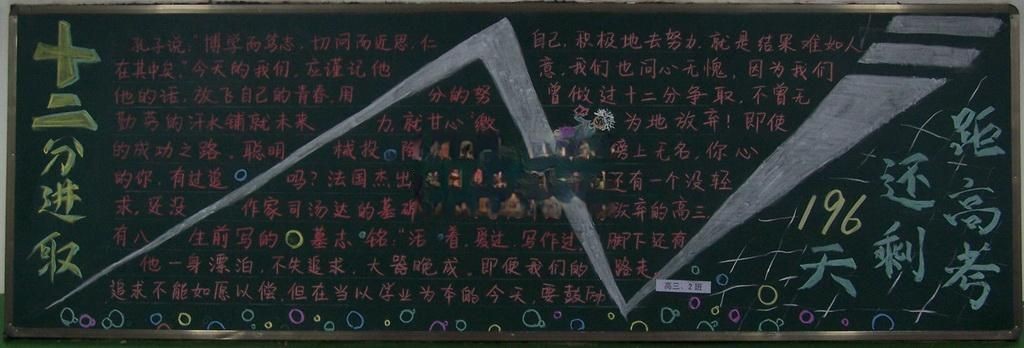 十二分进取
孔子说:"博学而笃志,切问而近思,仁
在其中矣."今天的我们,应谨记他
他的话,放飞自己的青春,用 分的努
劲荡的汗水铺就未来 力,就甘心
的成功之路。聪明 械投
的你,有过追 吗?法国杰出
求,还没 作家司汤达的基
有八 生前写的墓志铭:"活着,爱过,写作过
他一身漂泊,不失追求,大器晚成,即使我们的
追求不能如愿以偿,但在当以学业为本的今天,要鼓励
自己,积极地去努力,就是结果难如人
意,我们也问心无愧,因为我们
曾做过十二分争取,不曾无
为地放弃!即使
榜上无名,你心
还有一个没轻
放弃的高三,
脚下还有
路走
高三.2班
距高考
还剩
196
天